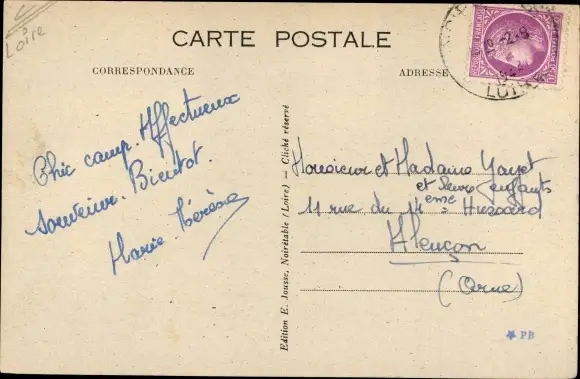 Loire
CARTE POSTALE
CORRESPONDANCE
ADRESSE
Chic camp. Affectueux
souvenir. Bientôt.
Marie Thérèse
Edition E. Jousse, Noirétable (Loire) — Cliché réservé
Monsieur et Madame
et leurs enfants
11 rue du 14ème Hussard
Alençon
(Orne)
PB